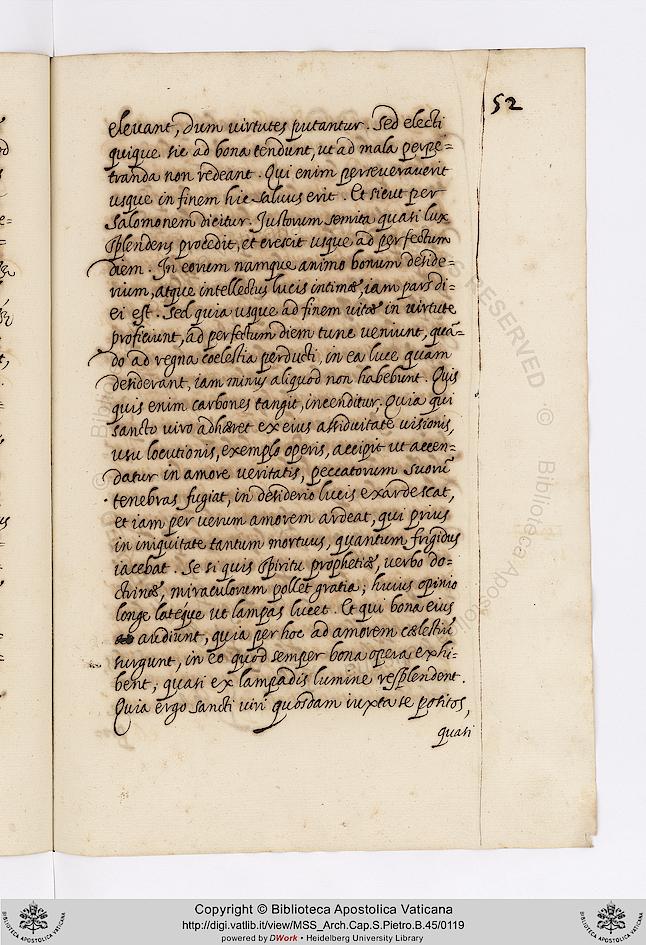 52
elevant, dum virtutes putantur. Sed electi
quique sic ad bona tendunt, ut ad mala perpe=
tranda non redeant. Qui enim perseveraverit
usque in finem hic salvus erit. Et sicut per
Salomonem dicitur. Justorum semita quasi lux
splendens procedit, et crescit usque ad perfectum
diem. In eorum namque animo bonum deside=
rium, atque intellectus lucis intimæ, iam pars di=
ei est. Sed quia usque ad finem vitæ in virtute
proficiunt, ad perfectum diem tunc veniunt, quã=
do ad regna coelestia perducti, in ea luce quam
desiderant, iam minus aliquod non habebunt. Quis
quis enim carbones tangit, incenditur. Quia qui
sancto viro adhæret ex eius assiduitate visionis,
usu locutionis, exemplo operis, accipit ut accen=
datur in amore veritatis, peccatorum suorũ
tenebras fugiat, in desiderio lucis exardescat,
et iam per verum amorem ardeat, qui prius
in iniquitate tantum mortuus, quantum frigidus
iacebat. Se si quis spiritu prophetiæ, verbo do=
ctrinæ, miraculorum pollet gratia; huius opinio
longe lateque ut lampas lucet. Et qui bona eius
audiunt, quia per hoc ad amorem cælestiũ
surgunt, in eo quod semper bona opera exhi=
bent; quasi ex lampadis lumine resplendent.
Quia ergo sancti viri quosdam iuxta se positos,
quasi
Copyright © Biblioteca Apostolica Vaticana
http://digi.vatlib.it/view/MSS_Arch.Cap.S.Pietro.B.45/0119
powered by DWork • Heidelberg University Library